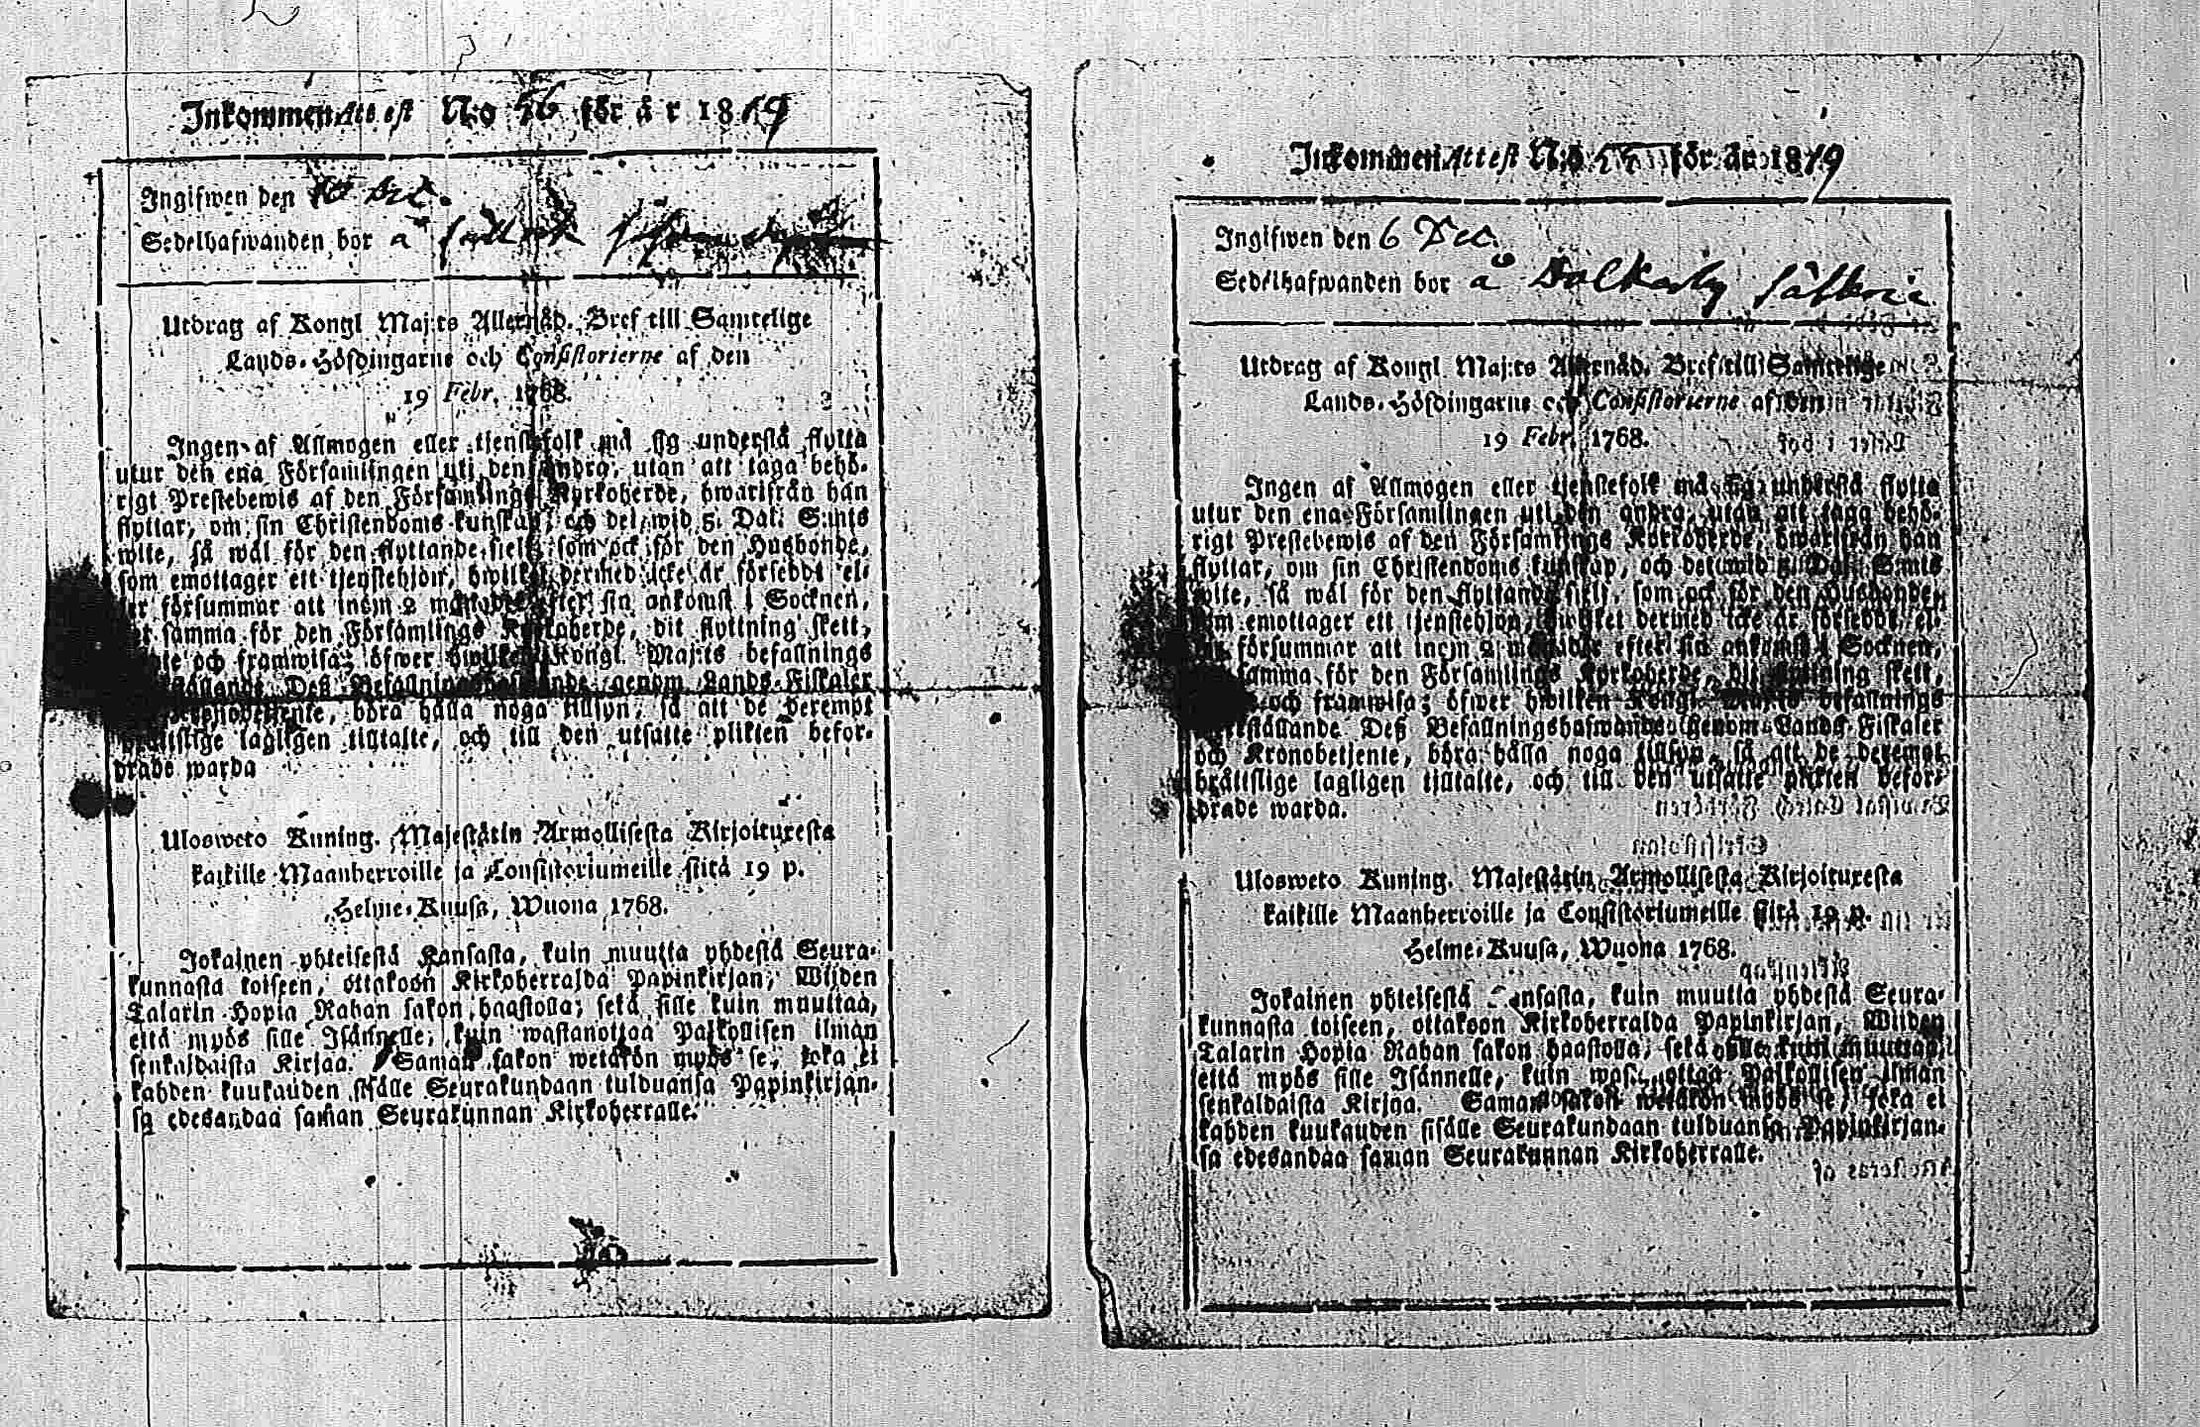 Inkommen Attest N:o 56 för år 1819
Ingifwen den
Sedelhafwanden bor å
Utdrag af Kongl Maj:ts Allernåd. Bref till Samtelige
Lands-Höfdingarne och Consistorierne af den
19 Febr. 1768.
Ingen af Allmogen eller tjenstefolk må sig understå flytta
utur den ena Församlingen uti den andra, utan att taga behö-
rigt Prestebewis af den Församlings Kyrkoherde, hwarifrån han
flyttar, om sin Christendoms kunskap, och det wid 5. Dal. S:mts
wite, så wäl för den flyttande sielf, som ock för den Husbonde,
som emottager ett tjenstehjon, hwilket dermed icke är försedt el-
ler försummar att inom 2 månader efter sin ankomst i Socknen,
samma för den Församlings Kyrkoherde, dit flyttning skett,
och framwisa; öfwer hwilken Kongl. Maj:ts befallnings
ställande Deß Befallningshafwande genom Lands-Fiskaler
Kronobetjente, böra hålla noga tillsyn, så att de deremot
bråttslige lagligen tilltalte, och till den utsatte plikten befor-
drade warda
Ulosweto Kuning. Majestätin Armollisesta Kirjoituxesta
kaikille Maanherroille ja Consistoriumeille siitä 19 p.
Helme-Kuusa, Wuona 1768.
Jokainen yhteisestä Kansasta, kuin muutta yhdestä Seura-
kunnasta toiseen, ottakoon Kirkoherralda Papinkirjan, Wijden
Talarin Hopia Rahan sakon haastolla; sekä sille kuin muuttaa,
että myös sille Isännelle, kuin wastanottaa Palkollisen ilman
senkaldaista Kirjaa. Saman sakon wetäkön myös se, joka ei
kahden kuukauden sisälle Seurakundaan tulduansa Papinkirjan-
sa edesandaa saman Seurakunnan Kirkoherralle.
Inkommen Attest N:o 55 för år 1819
Ingifwen den 6 Dec.
Sedelhafwanden bor å Dalkarby säterie
Utdrag af Kongl Maj:ts Allernåd. Bref till Samtelige
Lands-Höfdingarne och Consistorierne af den
19 Febr. 1768.
Ingen af Allmogen eller tjenstefolk må sig understå flytta
utur den ena Församlingen uti den andra, utan att taga behö-
rigt Prestebewis af den Församlings Kyrkoherde, hwarifrån han
flyttar, om sin Christendoms kunskap, och det wid 5. Dal. S:mts
wite, så wäl för den flyttande sielf, som ock för den Husbonde,
som emottager ett tjenstehjon, hwilket dermed icke är försedt, el-
försummar att inom 2 månader efter sin ankomst i Socknen,
samma för den Församlings Kyrkoherde, dit flyttning skett,
och framwisa; öfwer hwilken Kongl. Maj:ts befallnings
ställande Deß Befallningshafwande genom Lands-Fiskaler
och Kronobetjente, böra hålla noga tillsyn, så att de deremot
bråttslige lagligen tilltalte, och till den utsatte plikten befor-
drade warda.
Ulosweto Kuning. Majestätin Armollisesta Kirjoituxesta
kaikille Maanherroille ja Consistoriumeille siitä 19 p.
Helme-Kuusa, Wuona 1768.
Jokainen yhteisestä Kansasta, kuin muutta yhdestä Seura-
kunnasta toiseen, ottakoon Kirkoherralda Papinkirjan, Wijden
Talarin Hopia Rahan sakon haastolla; sekä sille kuin muuttaa,
että myös sille Isännelle, kuin wastanottaa Palkollisen ilman
senkaldaista Kirjaa. Saman sakon wetäkön myös se, joka ei
kahden kuukauden sisälle Seurakundaan tulduansa Papinkirjan-
sa edesandaa saman Seurakunnan Kirkoherralle.